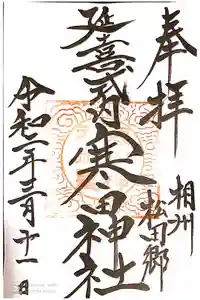 奉拝
相州
松田郷
延喜式内
寒田神社
令和二年三月十一日